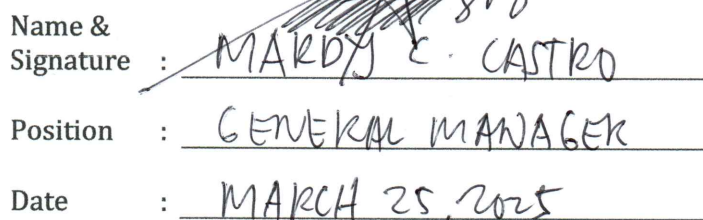 Name &
Signature : MARDY C. CASTRO
Position : GENERAL MANAGER
Date : MARCH 25, 2025